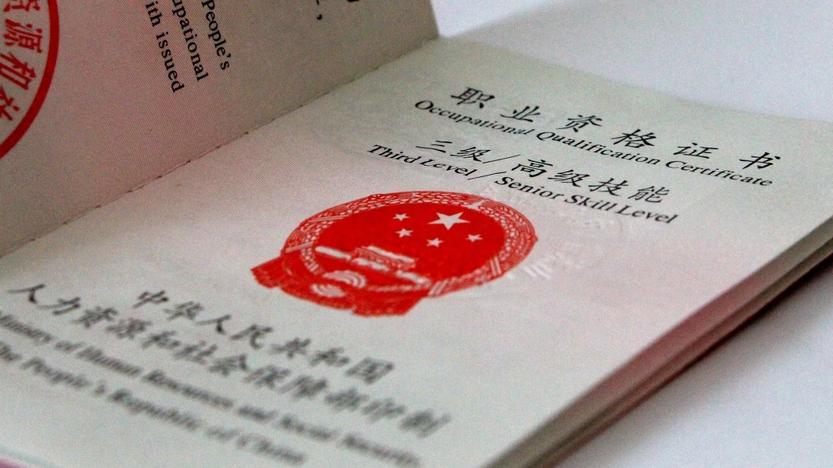 People's
upational
ith issued
资源和社
职业资格证书
Occupational Qualification Certificate
三级/高级技能
Third Level / Senior Skill Level
中华人民共和国
人力资源和社会保障部印制
Ministry of Human Resources and Social Security,
The People's Republic of China